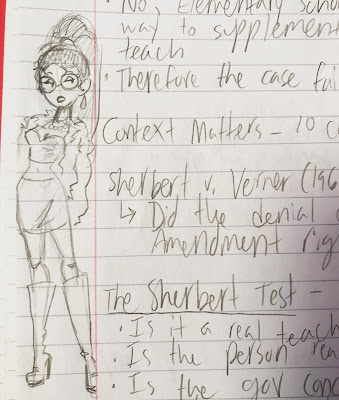 • No, Elementary scho
way to supplement
teach
• Therefore the case fai
Context Matters - 10 c
Sherbert v. Verner (196
↳ Did the denial
Amendment rig
The Sherbert Test -
• Is it a real teach
• Is the person rea
• Is the gov conc